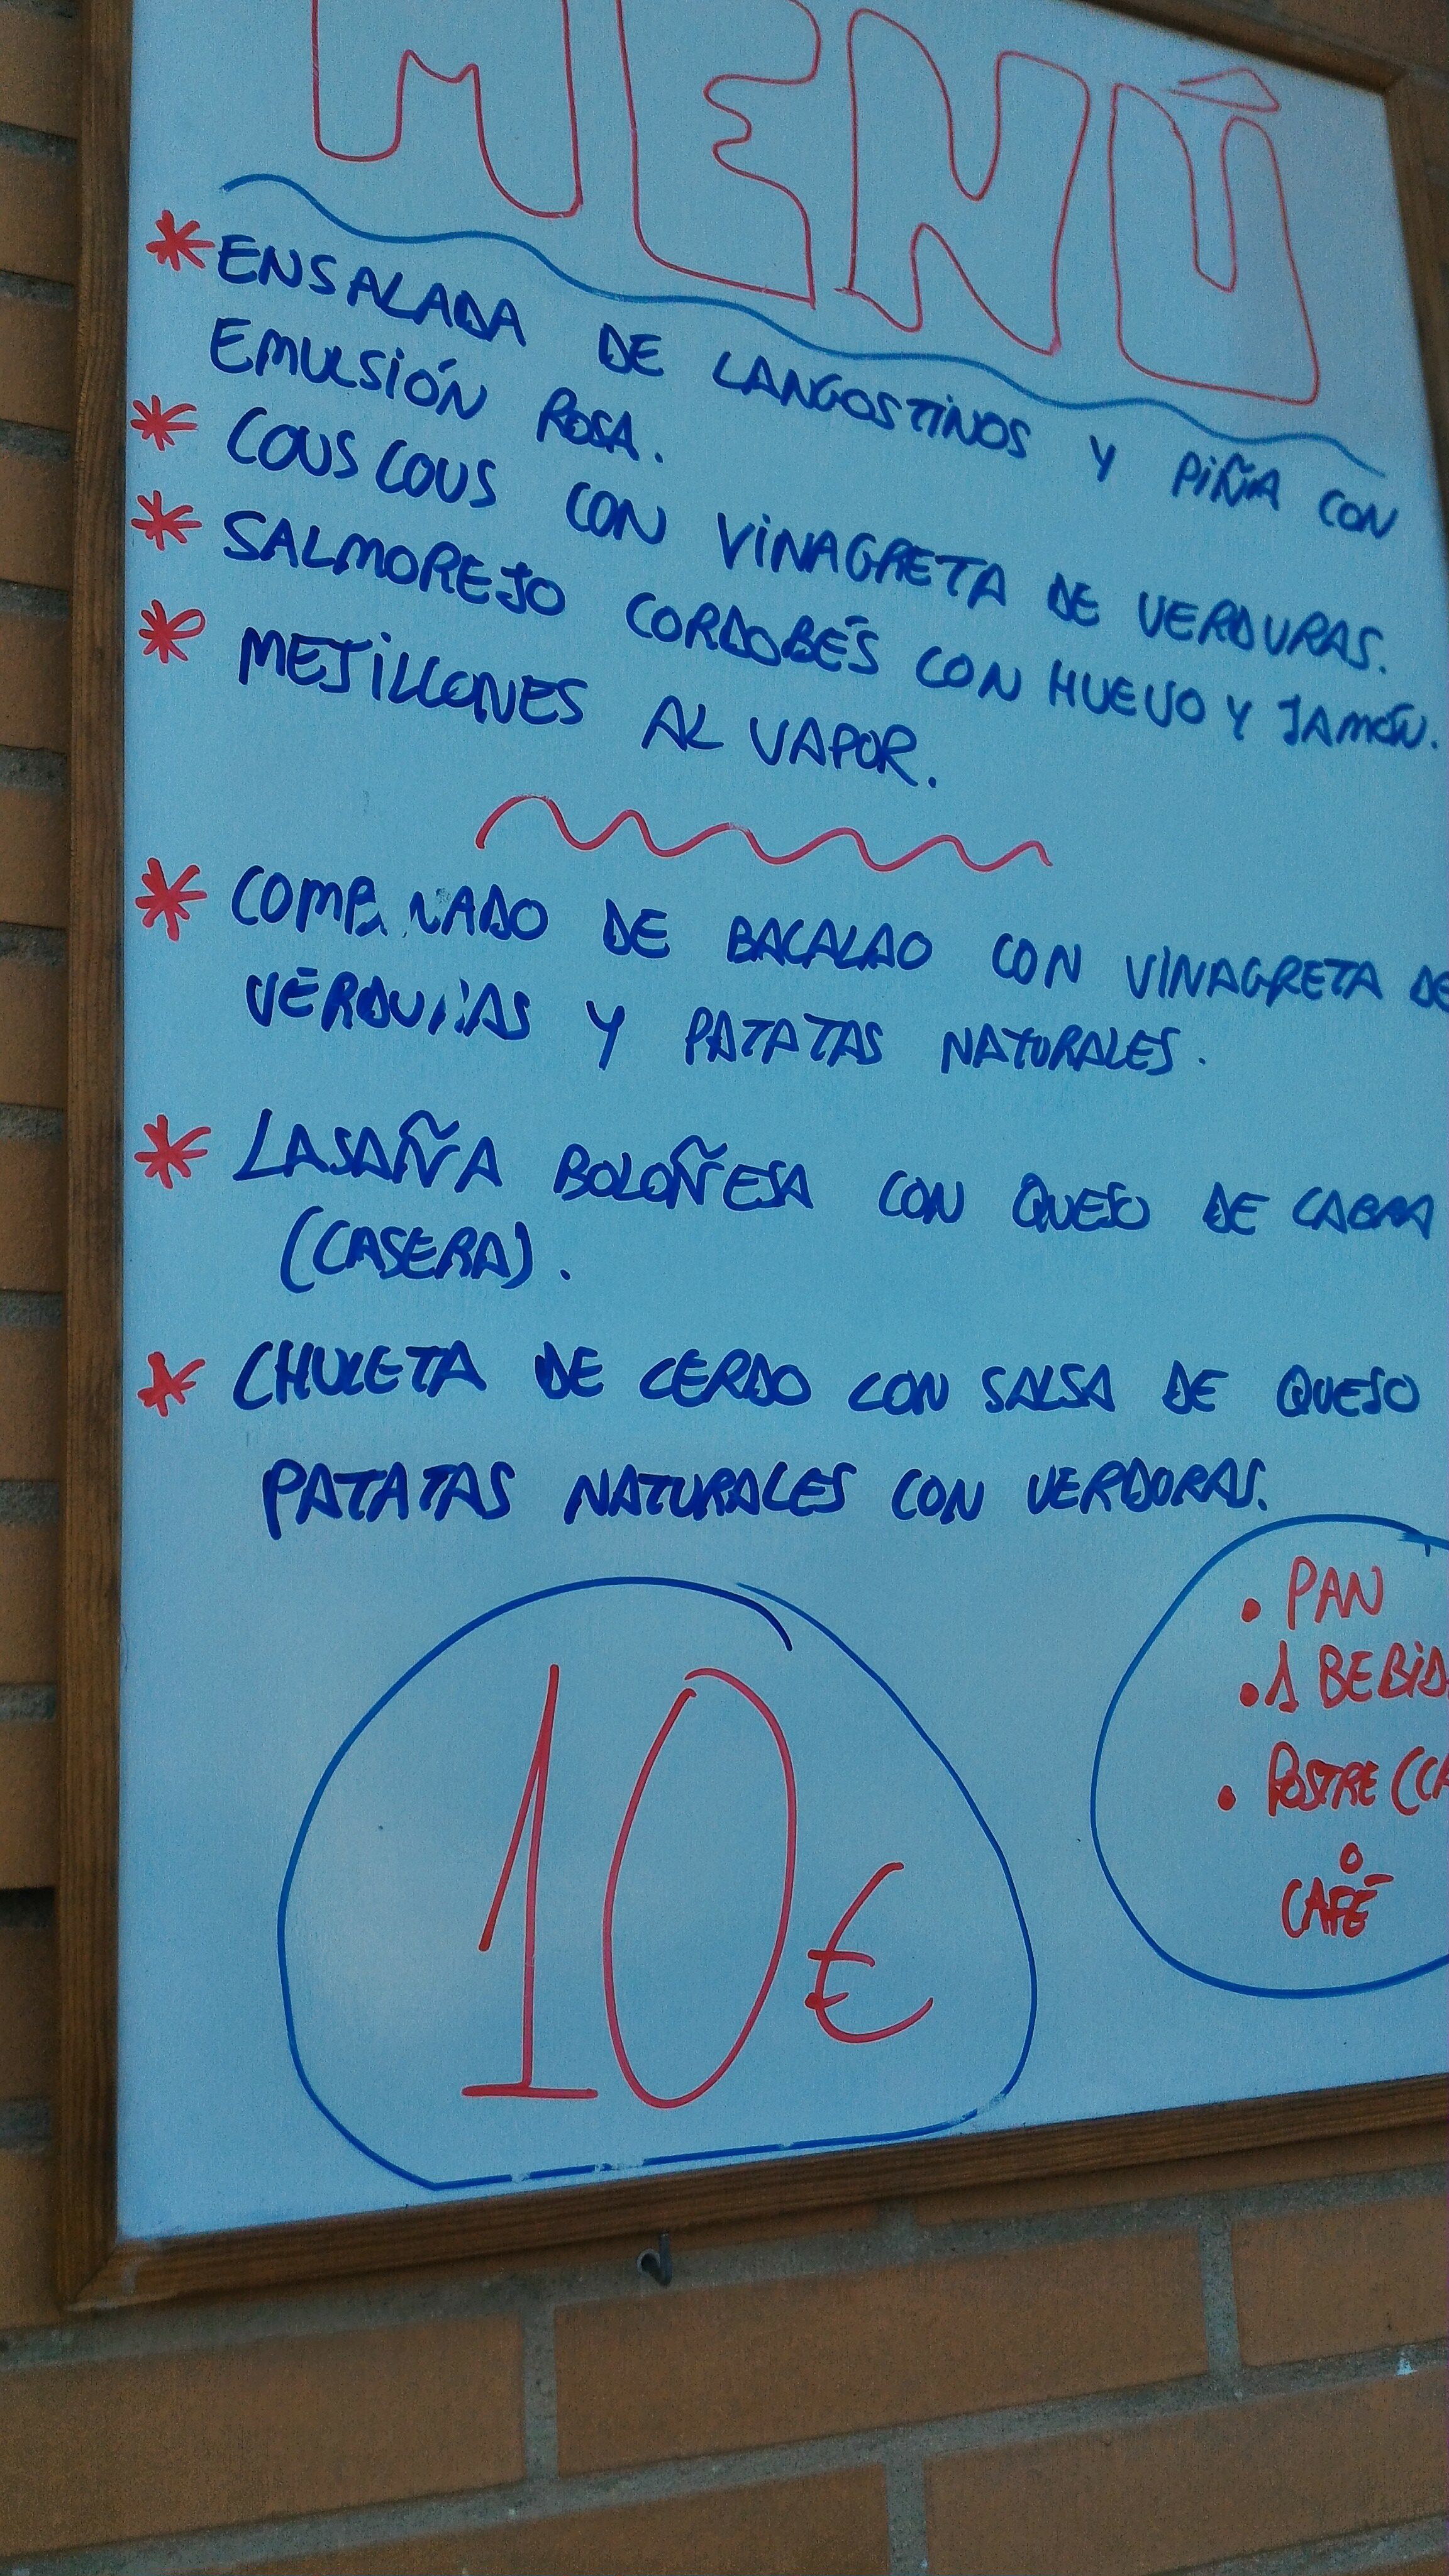 MENÚ
* ENSALADA DE LANGOSTINOS Y PIÑA CON
EMULSIÓN ROSA.
* COUS COUS CON VINAGRETA DE VERDURAS.
* SALMOREJO CORDOBÉS CON HUEVO Y JAMÓN.
* MEJILLONES AL VAPOR.
* COMBINADO DE BACALAO CON VINAGRETA DE
VERDURAS Y PATATAS NATURALES.
* LASAÑA BOLOÑESA CON QUESO DE CABRA
(CASERA).
* CHULETA DE CERDO CON SALSA DE QUESO
PATATAS NATURALES CON VERDURAS.
• PAN
• 1 BEBID
• POSTRE (CA
O
CAFÉ
10€